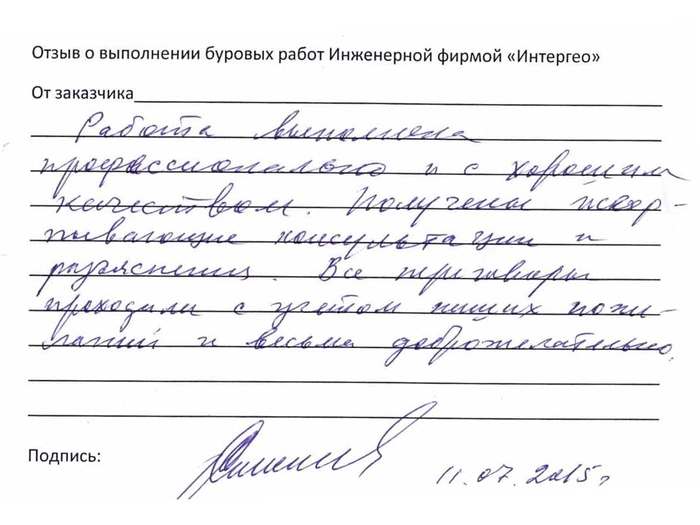 Отзыв о выполнении буровых работ Инженерной фирмой «Интергео»
От заказчика
Работа выполнена
профессионально и с хорошим
качеством. Получены исчер-
пывающие консультации и
разъяснения. Все переговоры
проходили с учетом наших поже-
ланий и весьма доброжелательно.
Подпись:
11.07.2015г